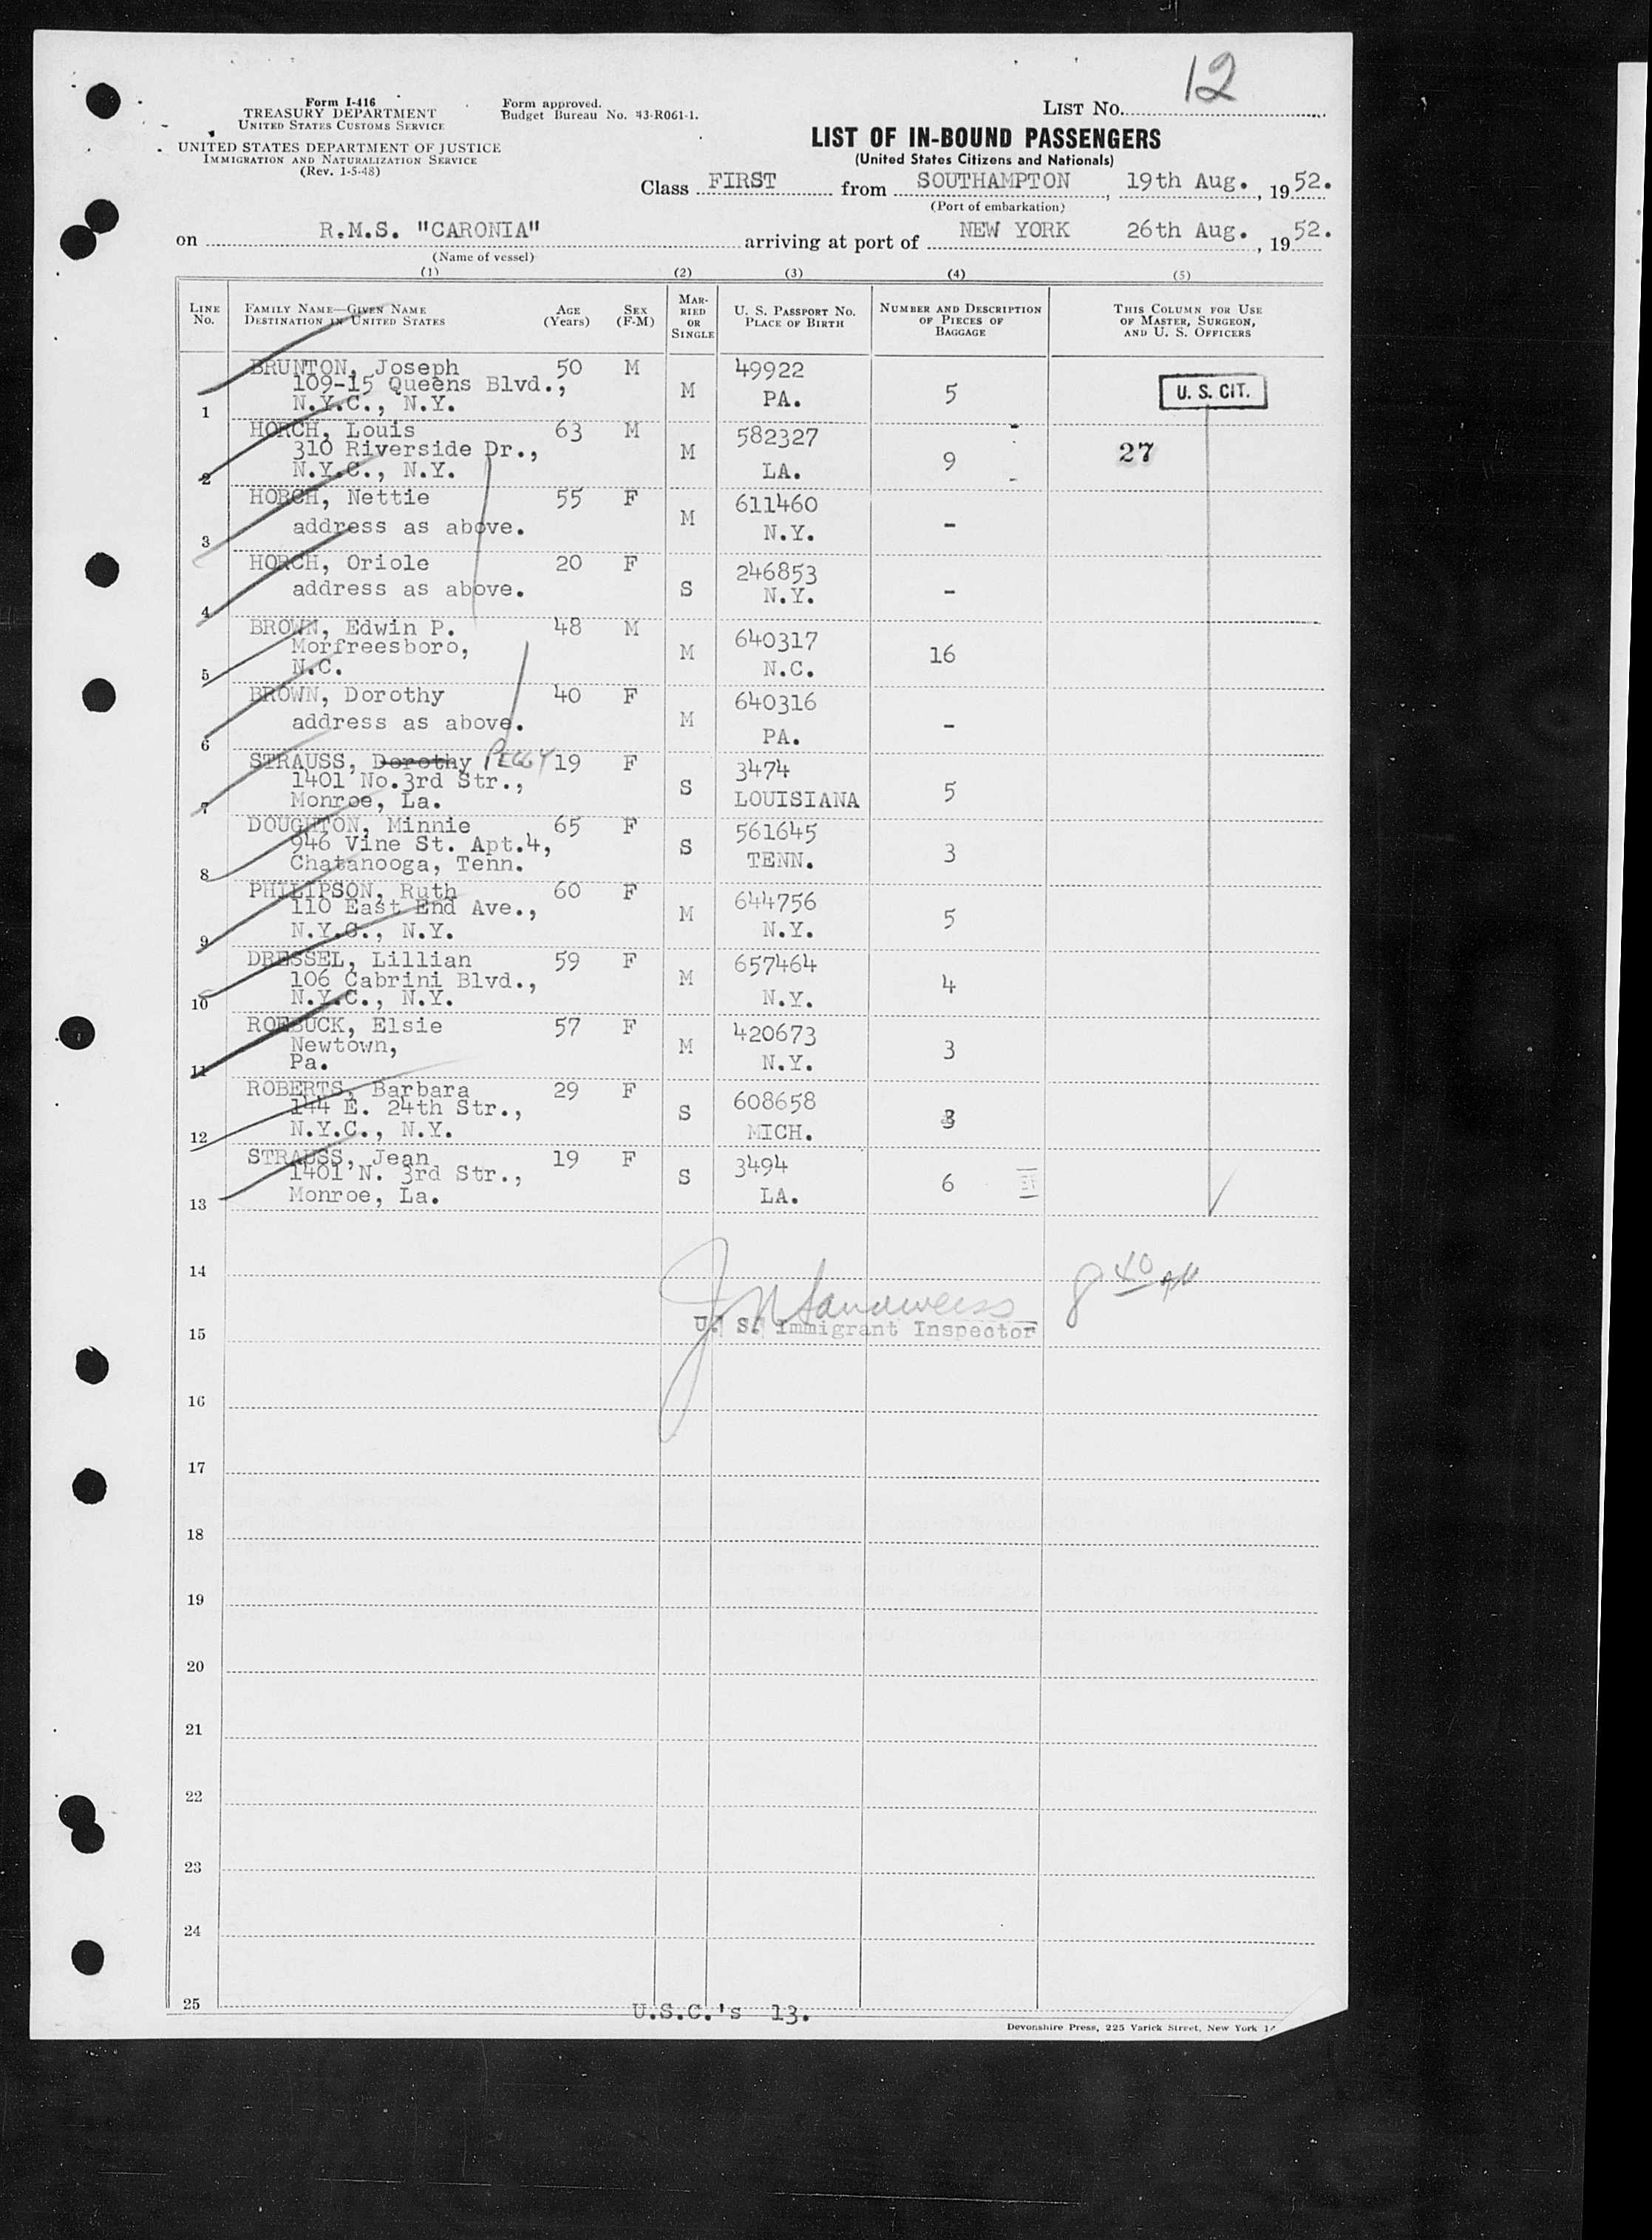 12
Form I-416
TREASURY DEPARTMENT
UNITED STATES CUSTOMS SERVICE
Form approved.
Budget Bureau No. 43-R061-1.
LIST NO.
UNITED STATES DEPARTMENT OF JUSTICE
IMMIGRATION AND NATURALIZATION SERVICE
(Rev. 1-5-48)
LIST OF IN-BOUND PASSENGERS
(United States Citizens and Nationals)
Class FIRST from SOUTHAMPTON, 19th Aug., 1952.
(Port of embarkation)
on R.M.S. "CARONIA" arriving at port of NEW YORK 26th Aug., 1952.
(Name of vessel)
(1) (2) (3) (4) (5)
LINE No. FAMILY NAME—GIVEN NAME DESTINATION IN UNITED STATES AGE (Years) SEX (F-M) MARRIED OR SINGLE U. S. PASSPORT NO. PLACE OF BIRTH NUMBER AND DESCRIPTION OF PIECES OF BAGGAGE THIS COLUMN FOR USE OF MASTER, SURGEON, AND U. S. OFFICERS
BRUNTON, Joseph 50 M 49922
109-15 Queens Blvd., M 5 U. S. CIT.
1 N.Y.C., N.Y. PA.
HORCH, Louis 63 M 582327
310 Riverside Dr., M 9 27
2 N.Y.C., N.Y. LA.
HORCH, Nettie 55 F 611460
3 address as above. M N.Y. -
HORCH, Oriole 20 F 246853
4 address as above. S N.Y. -
BROWN, Edwin P. 48 M 640317
Morfreesboro, M 16
5 N.C. N.C.
BROWN, Dorothy 40 F 640316
6 address as above. M PA. -
STRAUSS, Dorothy PEGGY 19 F 3474
1401 No.3rd Str., S 5
7 Monroe, La. LOUISIANA
DOUGHTON, Minnie 65 F 561645
946 Vine St. Apt.4, S 3
8 Chatanooga, Tenn. TENN.
PHILLIPSON, Ruth 60 F 644756
110 East End Ave., M 5
9 N.Y.C., N.Y. N.Y.
DRESSEL, Lillian 59 F 657464
106 Cabrini Blvd., M 4
10 N.Y.C., N.Y. N.Y.
ROEBUCK, Elsie 57 F 420673
Newtown, M 3
11 Pa. N.Y.
ROBERTS, Barbara 29 F 608658
144 E. 24th Str., S 3
12 N.Y.C., N.Y. MICH.
STRAUSS, Jean 19 F 3494
1401 N. 3rd Str., S 6
13 Monroe, La. LA.
14 8 40
15 U. S. Immigrant Inspector
16
17
18
19
20
21
22
23
24
25
U.S.C.'s 13.
Devonshire Press, 225 Varick Street, New York